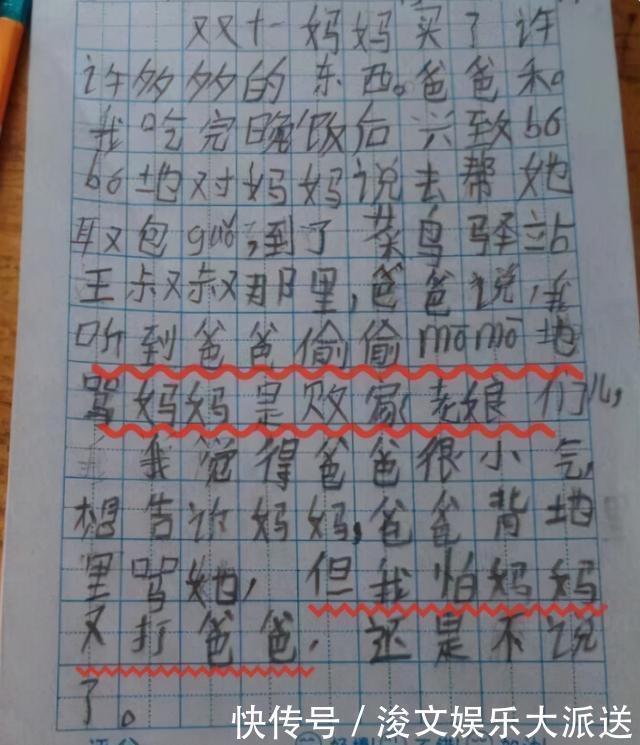 双十一妈妈买了许
许多多的东西。爸爸和。
我吃完晚饭后兴致bó
bó地对妈妈说去帮她
取包guǒ,到了菜鸟驿站
王叔叔那里,爸爸说,我
听到爸爸偷偷mōmō地
骂妈妈是败家老娘们儿,
我觉得爸爸很小气,
想告诉妈妈,爸爸背地
里骂她,但我怕妈妈
又打爸爸,还是不说
了。
快传号/浚文娱乐大派送